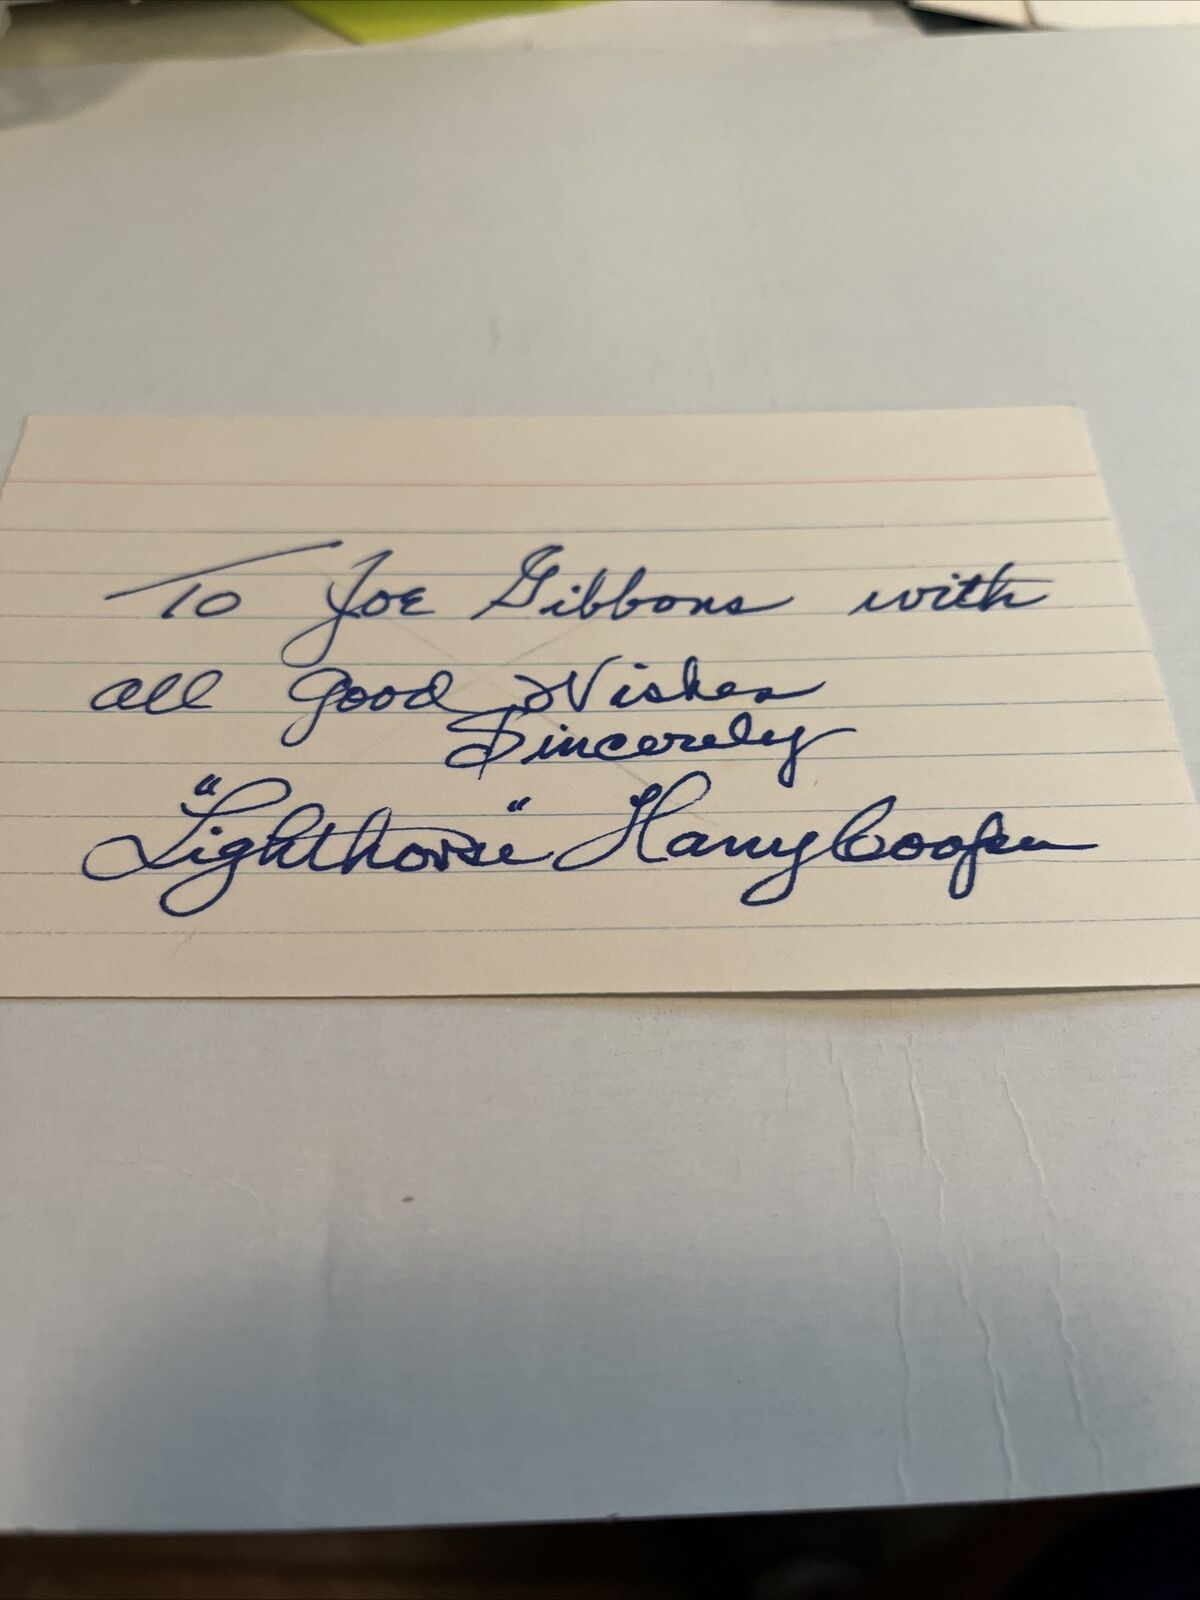 To Joe Gibbons with
all good Wishes
Sincerely
"Lighthorse" Harry Cooper